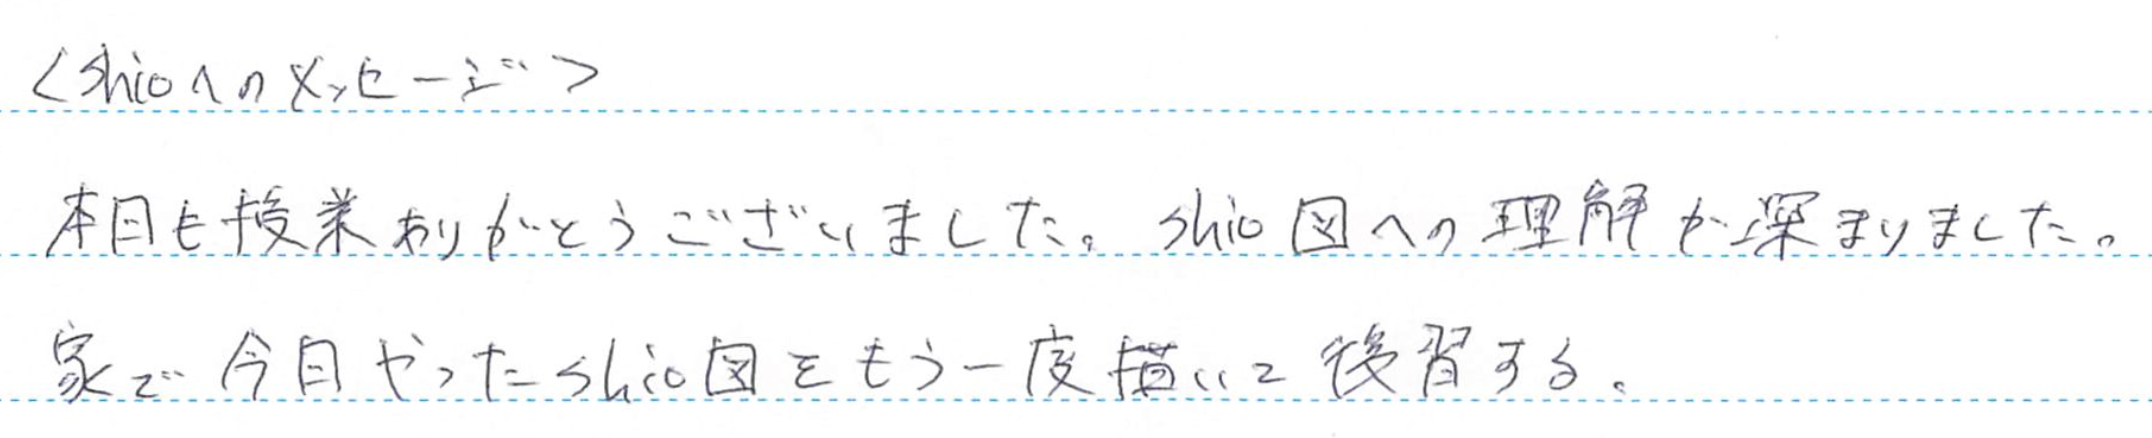 <shioへのメッセージ>
本日も授業ありがとうございました。shio図への理解が深まりました。
家で今日やったshio図をもう一度描いて復習する。